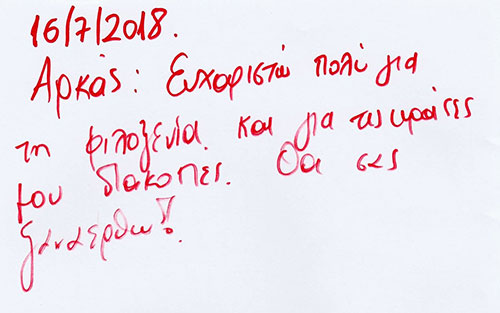 16/7/2018.
Αρκάς: Ευχαριστώ πολύ για
τη φιλοξενία και για τις ωραίες
μου διακοπές. Θα σας
ξαναέρθω!